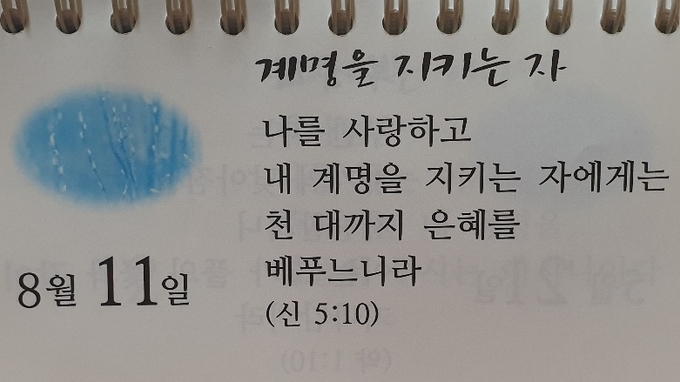 계명을 지키는 자
나를 사랑하고
내 계명을 지키는 자에게는
천 대까지 은혜를
베푸느니라
(신 5:10)
8월 11일